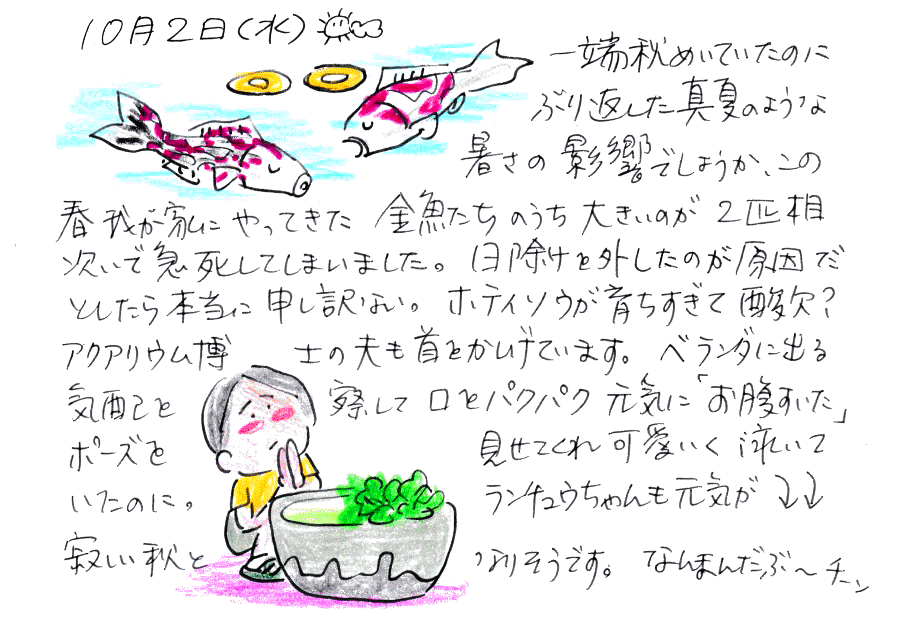 10月2日(水)
一端秋めいていたのに
ぶり返した真夏のような
暑さの影響でしょうか、この
春我が家にやってきた 金魚たちのうち大きいのが2匹相
次いで急死してしまいました。日除けを外したのが原因だ
としたら本当に申し訳ない。ホテイソウが育ちすぎて酸欠?
アクアリウム博士の夫も首をかしげています。ベランダに出る
気配を察して口をパクパク元気に「お腹すいた」
ポーズを見せてくれ可愛いく泳いで
いたのに。ランチュウちゃんも元気が↓↓
寂しい秋となりそうです。なんまんだぶ〜チーン